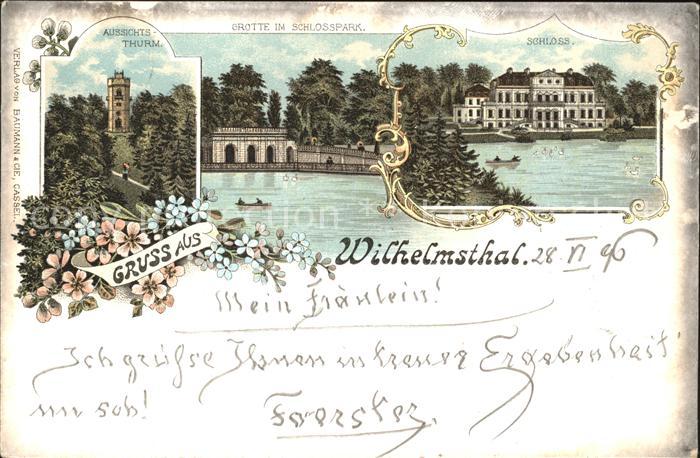 AUSSICHTS-
THURM.
GROTTE IM SCHLOSSPARK.
SCHLOSS.
VERLAG VON BAUMANN & CIE, CASSEL
GRUSS AUS
Wilhelmsthal. 28. VI 96
Mein Fräulein!
Ich grüße Ihnen in treuer Ergebenheit
Foerster.